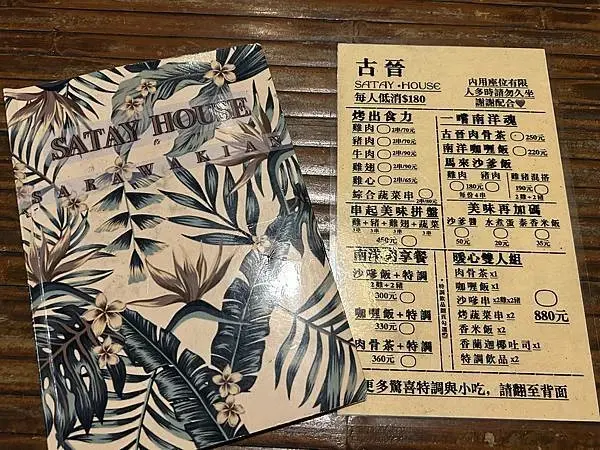 SATAY HOUSE
SARAWAKIAN
古晉
SATAY·HOUSE
每人低消$180
內用座位有限
人多時請勿久坐
謝謝配合
烤出食力
雞肉 2串/70元
豬肉 2串/70元
牛肉 2串/90元
雞翅 2串/90元
雞心 2串/65元
綜合蔬菜串
串起美味拼盤
雞+豬+雞翅+蔬菜
450元
一嚐南洋魂
古晉肉骨茶 250元
南洋咖喱飯 220元
馬來沙爹飯
雞肉 豬肉 雞豬混搭
180元 190元
每份4串 2雞+2豬
美味再加碼
沙爹醬 水煮蛋 泰香米飯
50元 20元 35元
南洋獨享餐
沙嗲飯+特調
2雞+2豬
300元
咖喱飯+特調
330元
肉骨茶+特調
360元
暖心雙人組
肉骨茶x1
咖喱飯x1
沙嗲串x2雞x2豬
烤蔬菜串x2
香米飯x2
香蘭迦椰吐司x1
特調飲品x2
880元
更多驚喜特調與小吃，請翻至背面